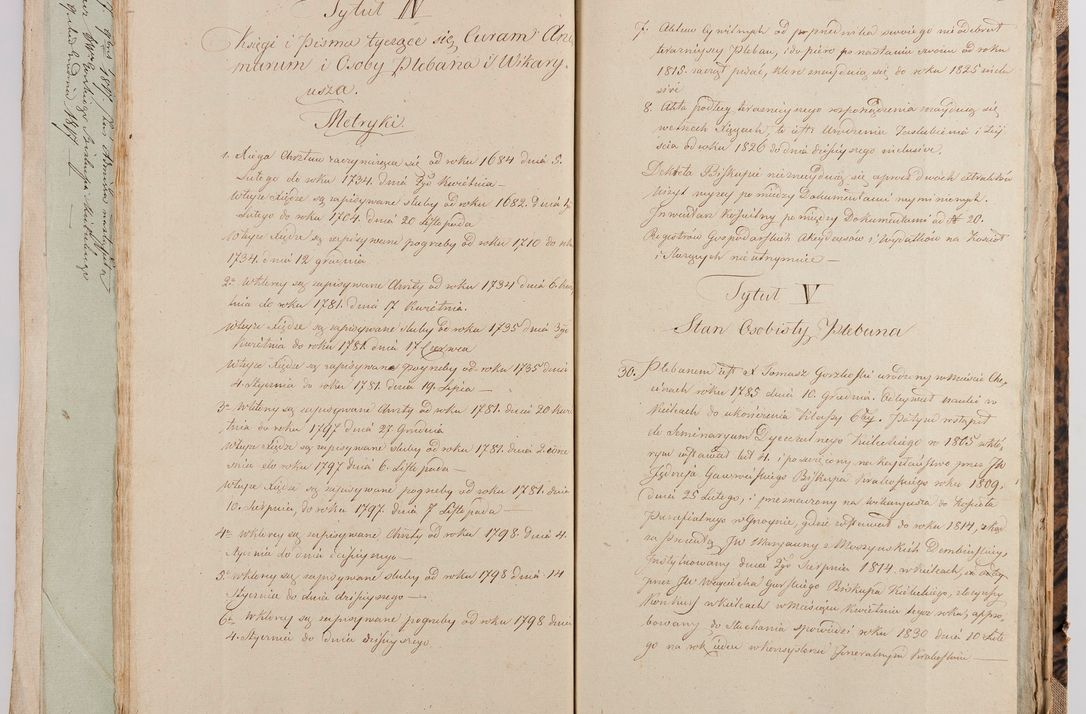 Tytuł IV
Księgi i Pisma tyczące się Curam Ani-
marum i Osoby Plebana i Wikary-
usza.
Metryki.
1. Xięga Chrztów zaczynaiąca się od roku 1684 dnia 5.
Lutego do roku 1734. dnia Kwietnia —
W teyże Xiędze są zapisywane śluby od roku 1682. dnia
Lutego do roku 1704. dnia 20 Listopada
W teyże Xiędze są zapisywane pogrzeby od roku 1710 do roku
1734. dnia 12 grudnia
2a W ktorey są zapisywane Chrzty od roku 1734 dnia 6 Kwie-
tnia do roku 1781. dnia 17 Kwietnia.
W teyże Xiędze są zapisywane śluby od roku 1735 dnia 3go
Kwietnia do roku 1781. dnia 17 Czerwca
W teyże Xiędze są zapisywane pogrzeby od roku 1735 dnia
4. Stycznia do roku 1781. dnia 19. Lipca —
3a W ktorey są zapisywane Chrzty od roku 1781. dnia 20 Kwie-
tnia do roku 1797 dnia 27. Grudnia
W teyże Xiędze są zapisywane śluby od roku 1781. dnia 2.
do roku 1797 dnia 6. Listopada —
W teyże Xiędze są zapisywane pogrzeby od roku 1781. dnia
10. Sierpnia, do roku 1797. dnia 8 Listopada —
4a w ktorey są zapisywane Chrzty od roku 1798. dnia 4.
Stycznia do dnia dzisieyszego —
5a w ktorey są zapisywane śluby od roku 1798 dnia 14
Stycznia do dnia dzisieyszego —
6ta W ktorey są zapisywane pogrzeby od roku 1798 dnia
4. Stycznia do dnia dzisieyszego
7. Aktow Cywilnych od poprzednika swoiego nie odebrał
teraznieyszy Pleban, i dopiero po nastaniu swoim od roku
1815. zaczął pisać, ktore znayduią się do roku 1825 inclu-
sive
8. Akta podług teraznieyszego rozporządzenia znayduią się
w trzech Xięgach, to iest Urodzenia Zaślubienia i Zey-
ścia od roku 1826 do dnia dzisieyszego inclusive.
Dekreta Biskupie nieznayduią się oprocz dwoch extraktów
Wizyt wyzey pomiędzy Dokumentami wymienionych.
Inwentarz Kościelny pomiędzy Dokumentami ad No 20.
Regestrów Gospodarskich Akcydensów i Wydatków na Kościoł
i Starszych nie utrzymuie —
Tytuł V
Stan Osobisty Plebana
30. Plebanem iest X Tomasz Gorzkoski urodzony w mieście Chę-
cinach roku 1785 dnia 10. Grudnia. Odbywał nauki w
Kielcach do ukończenia Klassy 6tey. Potym wstąpił
do Seminaryum Dyecezalnego Kieleckiego w 1805 w któ-
rym zostawał lat 4. i poświęcony na Kapłaństwo przez JW
Jędrzeja Gawrońskiego Biskupa Krakoskiego roku 1809.
dnia 25 Lutego, i przeznaczony na wikaryusza do Kościoła
Parafialnego w Gnoynie, gdzie zostawał do roku 1814, zkąd
za Prezentą JW Maryanny z Moszynskich Dembinskiey,
Instytuowany dnia 2go Sierpnia 1814. w Kielcach,
przez JW Woyciecha Gorskiego Biskupa Kieleckiego, złożywszy
Konkurs w Kielcach w Miesiącu Kwietniu tegoz roku; appro-
bowany do słuchania spowiedzi roku 1830 dnia 10 Lute-
go na rok ieden w konsystorzu Jeneralnym Krakoskim —